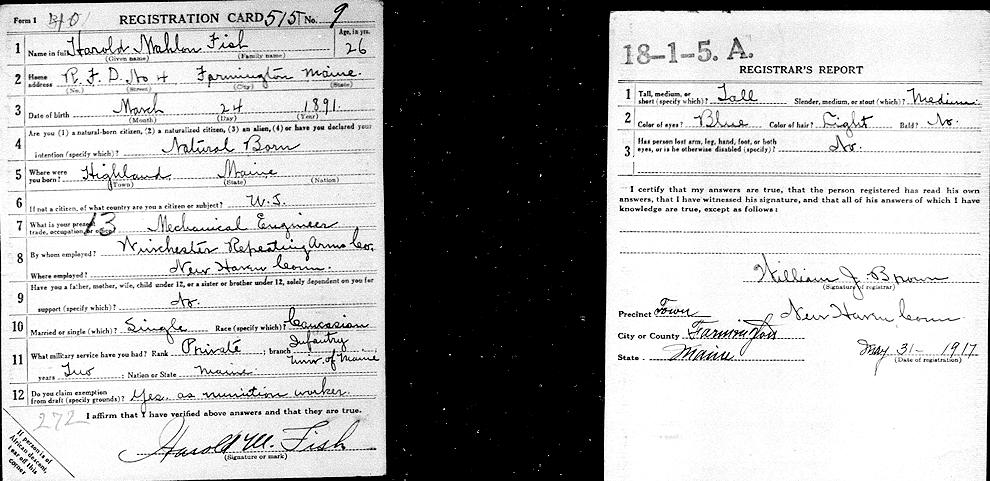 Form 1 REGISTRATION CARD 515 No. 9
1 Name in full Harold Mahlon Fish Age, in yrs. 26
(Given name) (Family name)
2 Home address R. F. D. No 4 Farmington Maine.
(No.) (Street) (City) (State)
3 Date of birth March 24 1891.
(Month) (Day) (Year)
4 Are you (1) a natural-born citizen, (2) a naturalized citizen, (3) an alien, (4) or have you declared your
intention (specify which)? Natural Born
5 Where were you born? Highland Maine
(Town) (State) (Nation)
6 If not a citizen, of what country are you a citizen or subject? U.S.
7 What is your present trade, occupation, or office? 13 Mechanical Engineer
8 By whom employed? Winchester Repeating Arms Co.
Where employed? New Haven Conn.
9 Have you a father, mother, wife, child under 12, or a sister or brother under 12, solely dependent on you for
support (specify which)? No.
10 Married or single (which)? Single Race (specify which)? Caucasian
11 What military service have you had? Rank Private ; branch Infantry Univ. of Maine
years Two ; Nation or State Maine
12 Do you claim exemption from draft (specify grounds)? Yes. as munition worker.
272 I affirm that I have verified above answers and that they are true.
Harold M. Fish
(Signature or mark)
If person is of African descent, tear off this corner
18-1-5. A.
REGISTRAR'S REPORT
1 Tall, medium, or short (specify which)? Tall Slender, medium, or stout (which)? Medium
2 Color of eyes? Blue Color of hair? Light Bald? No.
3 Has person lost arm, leg, hand, foot, or both eyes, or is he otherwise disabled (specify)? No.
I certify that my answers are true, that the person registered has read his own
answers, that I have witnessed his signature, and that all of his answers of which I have
knowledge are true, except as follows:
William J. Brown
(Signature of registrar)
Precinct Town New Haven Conn
City or County Farmington
State Maine May 31- 1917
(Date of registration)